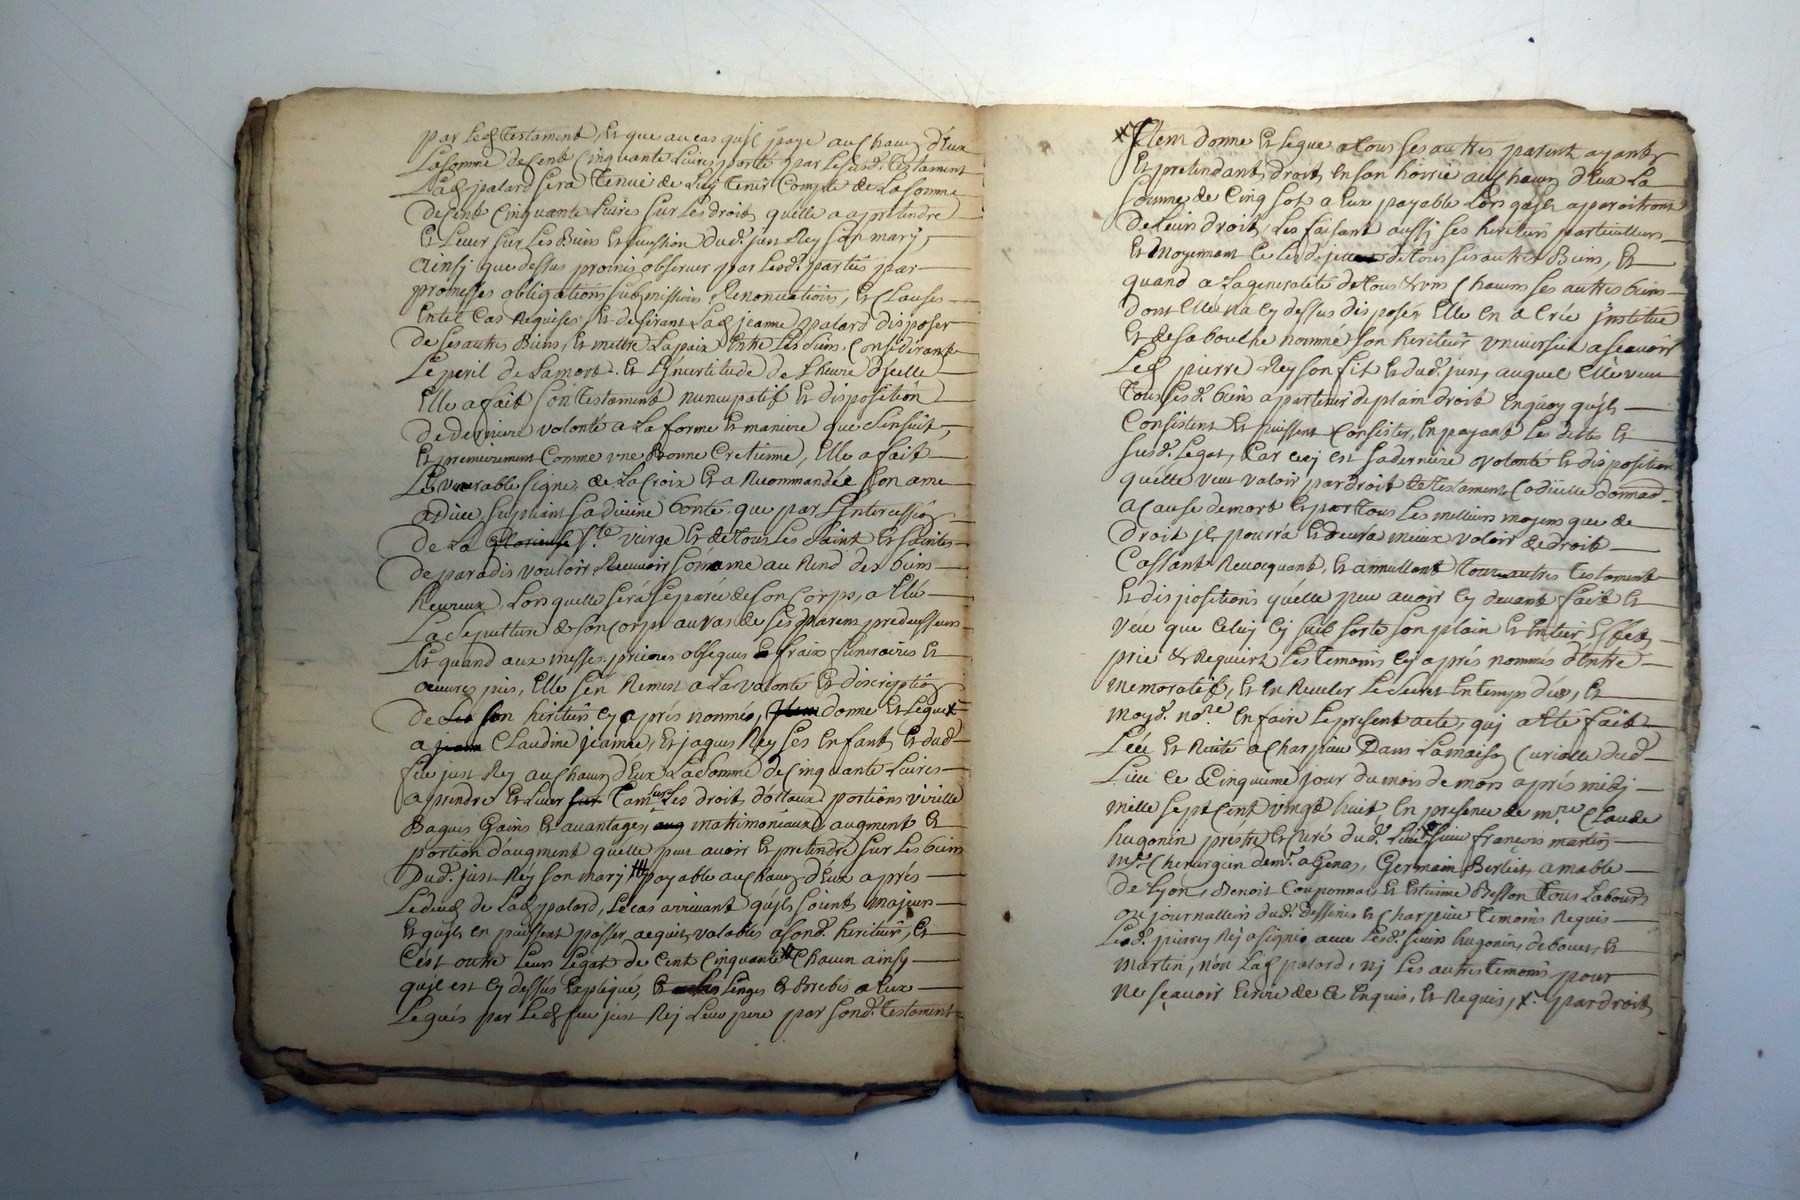 par led. testament, et que au cas quil paye au chacun d'eux
la somme de cent cinquante livres porté par le susd. testament
lad. palard sera tenue de luy tenir compte de la somme
de cent cinquante livres sur les droits quelle a a pretendre
et lever sur les biens et sucession dud. just Rey son mary,
ainsy que dessus promis observer par lesd. parties par
promesses obligations submissions Renonciations, et clauses
en tel cas Requises et desirant lad. jeanne palard disposer
de ses autres biens, et mettre la paix entre les siens, considerant
le peril de la mort. et l'jncertitude de l'heure d'jcelle
Elle a fait son testament nuncupatif et disposition
de derniere volonté a la forme et maniere que s'ensuit,
et premierement comme vne bonne cretienne, elle a fait
le venerable signe de la croix et a Recommandée son ame
a dieu, supliant sa divine bonté que par l'jntercession
de la glorieuse ste. vierge et de tous les saint et saintes
de paradis vouloir Recevoir son ame au Rend des bien
heureux lors quelle sera séparée de son corps, a élu
la sepulture de son corps au vas de ses parens predecesseurs
et quand aux messes prieres obseques et fraix funeraires et
oeuvres pies, elle s'en Remest a la volonté et discreption
de son heritier cy aprés nommés, donne et legue
a Claudine jeanne, et jaques Rey ses enfants et dud.
feu just Rey au chacun d'eux la somme de cinquante livres
a prendre et lever tam sur les droits dottaux portions virille
Bagues gains et avantages, matrimoneaux, augment et
portion d'augment quelle peut avoir et pretendre sur les biens
Dud. just Rey son mary payable au chacun d'eux aprés
le deces de lad. palard, le cas arrivant qu'jls soient majeurs
et quils en puissent passer aequit valables a sond. heritier, et
c'est outre leurs legat de cent cinquante chacun ainsy
quil est cy dessus expliqué, et linges et brebis a eux
legués par led. feu just Rey leur pere par sond. testament
Item donne et legue a tous ses autres parent ayants
et pretendants droit en son hoirie au chacun d'eux la
somme de cinq sols a eux payable lors quils aparoitront
de leurs droit, les faisant aussy ses heritiers particuliers
et moyennant ce les de tous ses autres biens, et
quand a la generalité de tous et vns chacuns ses autres biens
dont elle n'a cy dessus disposer elle en a crée jnstitué
et de sa bouche nommé son heritier vniversel a scavoir
led. pierre Rey son fils et dud. just, auquel elle veut
tous sesd. biens apartenir de plain droit en quoy quils
consistent et puissent consister, en payant les dettes et
susd. legat, car cecy est sa derniere volonté et disposition
qu'elle veut valoir par droit de testament codicille donnad.
a cause de mort et par tous les meilleurs moyens que de
droit jl pourra et devra mieux valoir de droit
cassant Revocquant, et annullant tous autres testament
et dispositions qu'elle peu avoir cy devant fait et
veut que celuy cy seul sorte son plain et entier effet
prie et Requiert les temoins cy aprés nommés d'entre
memoratif, et en Receler le secret en temps d'eu, et
moyd. nore. en faire le present acte, quj a été fait
Léu et Recité a charpieu Dans la maison curialle dud.
lieu ce Cinquieme jour du mois de mars aprés midj
mille sept cent vingt huit en presence de mre. Claude
hugonin prestre et curé dud. lieu sieur françois martin
mre. chirurgin demt. a Genas, Germain Berliet, amable
de lyon, Benoit couponnas et estienne Besson tous labour
ou journalliers dud. dessines et charpieu temoins Requis
lesd. pierre Rey a signé avec lesd. sieurs hugonin, debouet, et
martin, non lad. palard, nj les autres temoins pour
ne sçavoir ecrire de ce enquis, et Requis, par droit